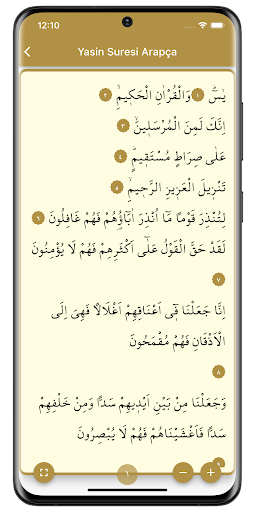 12:10
Yasin Suresi Arapça
يٰسٓ ۚ ١ وَالْقُرْاٰنِ الْحَك۪يمِۙ ٢
اِنَّكَ لَمِنَ الْمُرْسَل۪ينَۙ ٣
عَلٰى صِرَاطٍ مُسْتَق۪يمٍۜ ٤
تَنْز۪يلَ الْعَز۪يزِ الرَّح۪يمِۙ ٥
لِتُنْذِرَ قَوْمًا مَٓا اُنْذِرَ اٰبَٓاؤُ۬هُمْ فَهُمْ غَافِلُونَ ٦
لَقَدْ حَقَّ الْقَوْلُ عَلٰٓى اَكْثَرِهِمْ فَهُمْ لَا يُؤْمِنُونَ
٧
اِنَّا جَعَلْنَا ف۪ٓي اَعْنَاقِهِمْ اَغْلَالًا فَهِيَ اِلَى
الْاَذْقَانِ فَهُمْ مُقْمَحُونَ
٨
وَجَعَلْنَا مِنْ بَيْنِ اَيْد۪يهِمْ سَدًّا وَمِنْ خَلْفِهِمْ
سَدًّا فَاَغْشَيْنَاهُمْ فَهُمْ لَا يُبْصِرُونَ
١